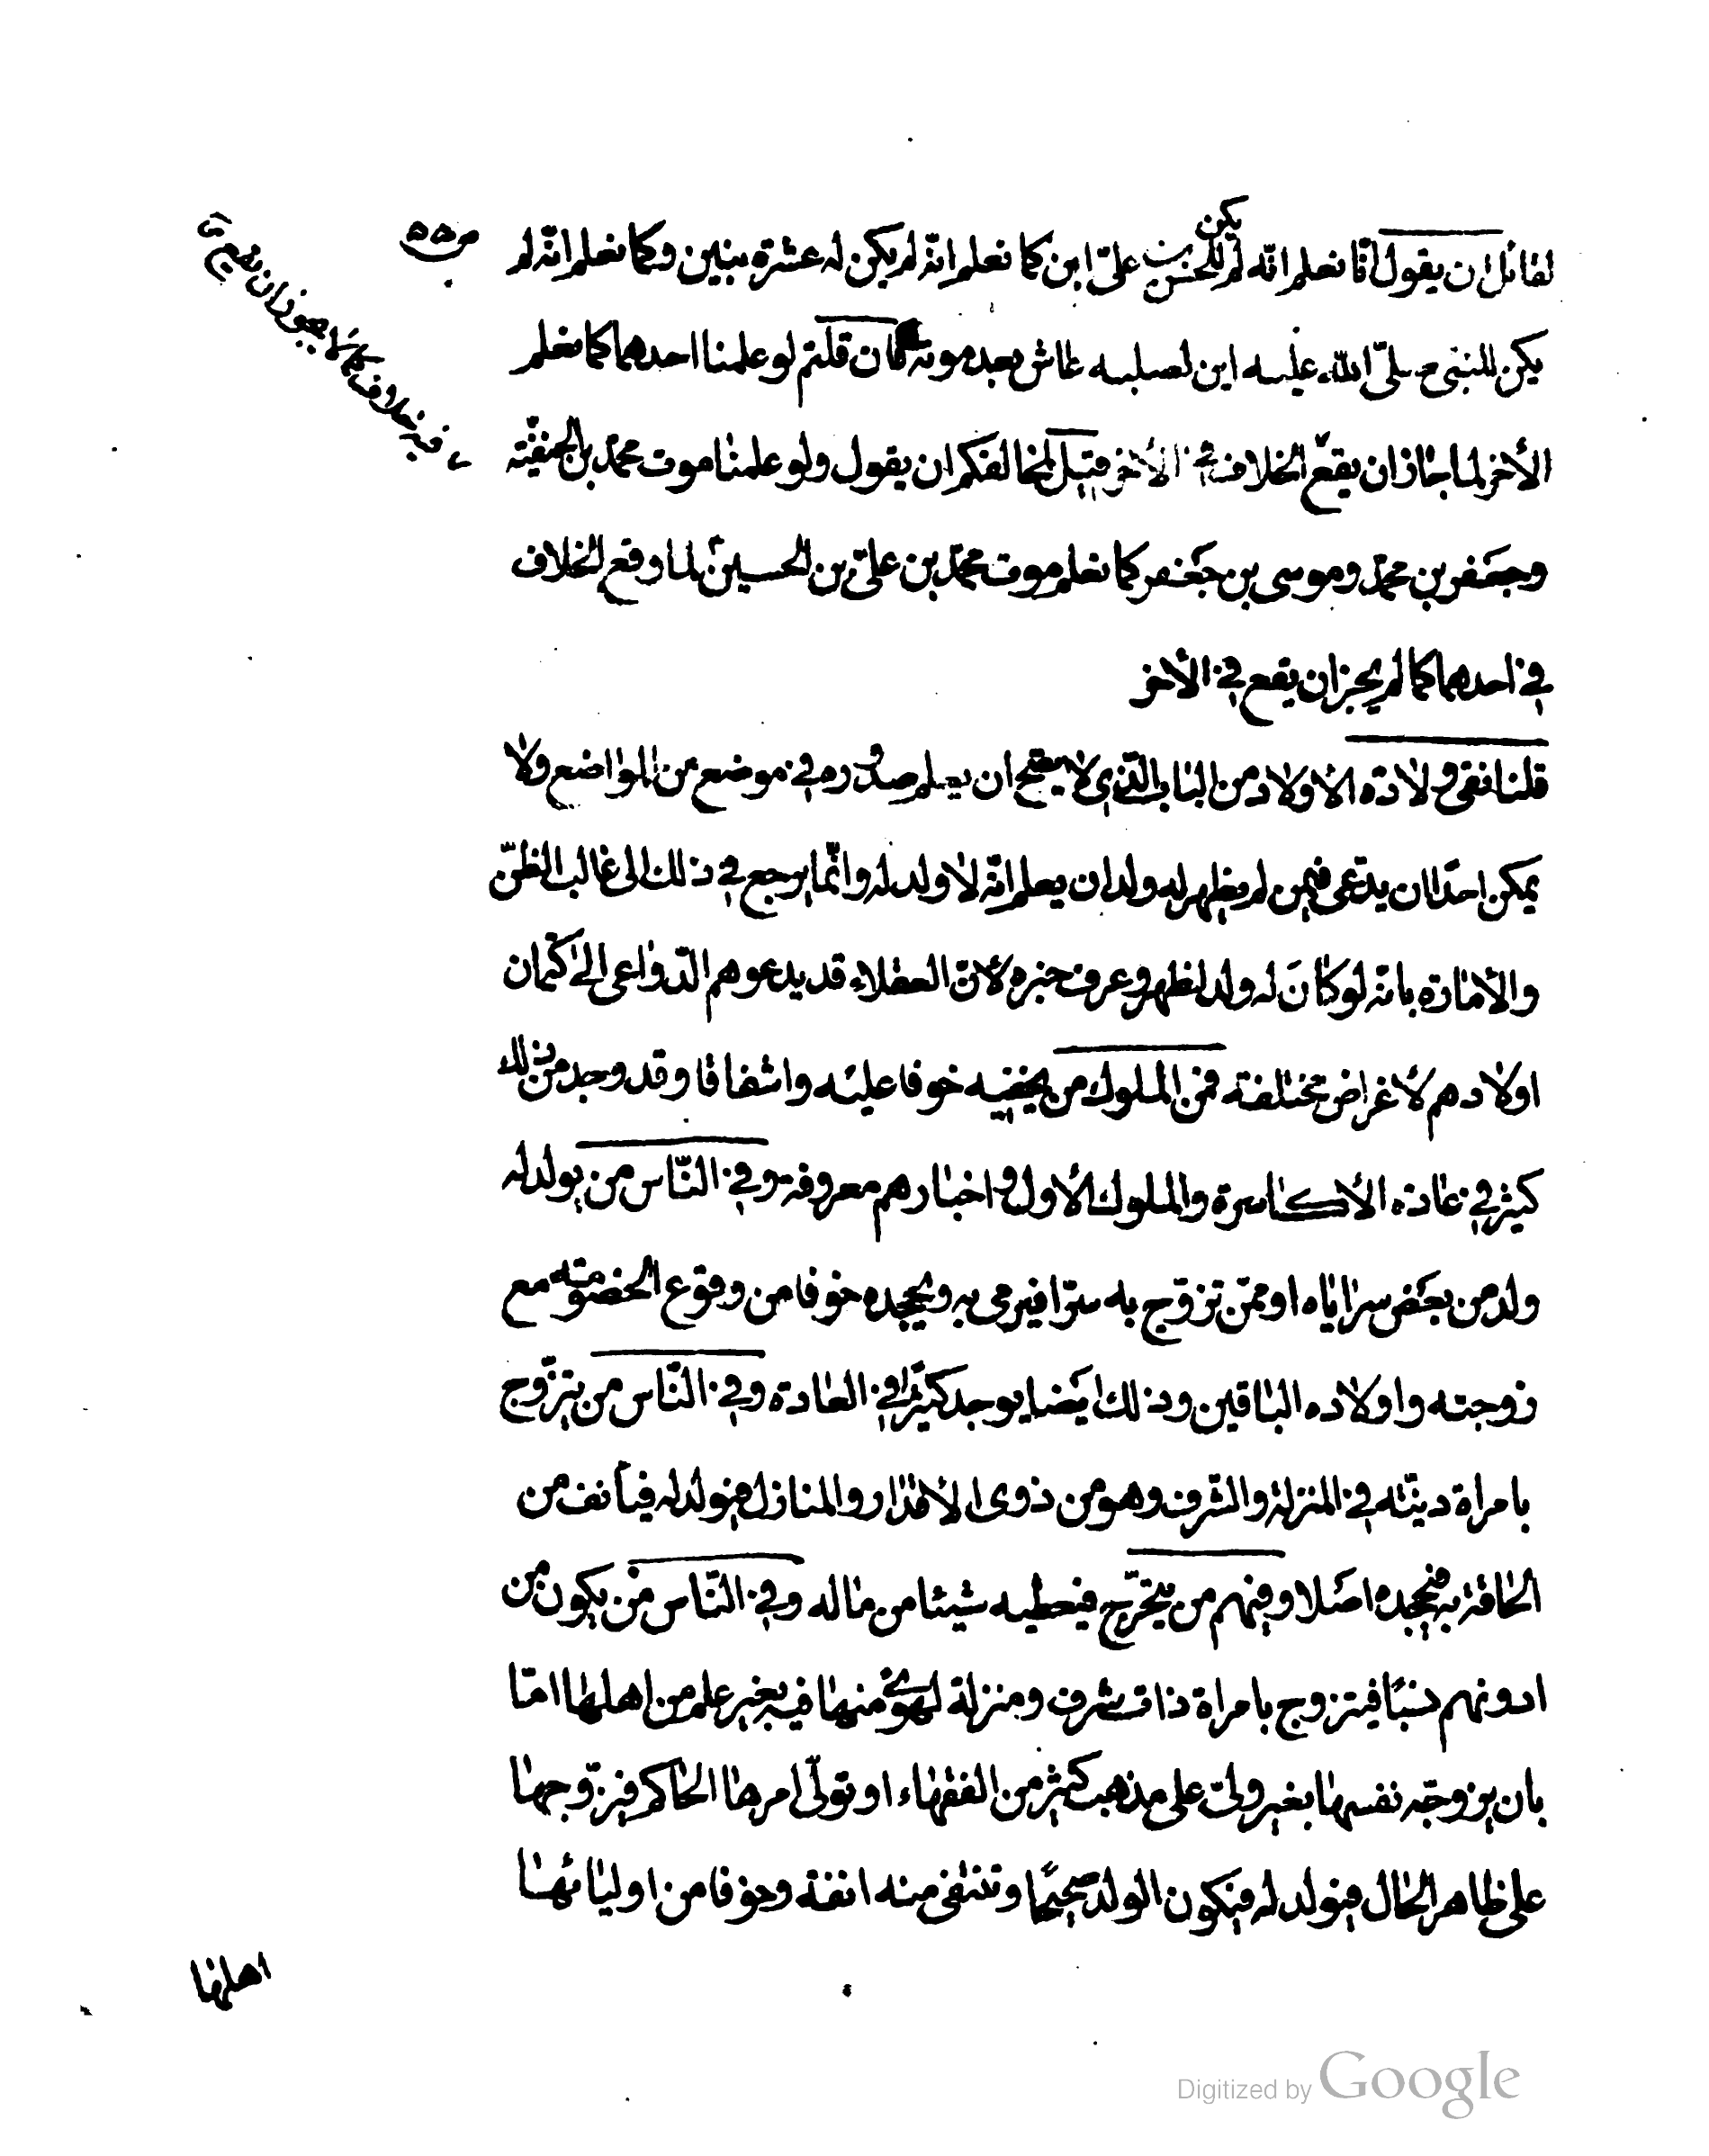 لقائل ان يقول انّا نعلم انّه لم يكن للحسن بن علىّ ابن كما نعلم انّه لم يكن له عشرة بنين وكما نعلم انّه لم
يكن للنبىّ صلىّ اللّه عليه ابن لصلبه عاش بعد موته فان قلتم لو علمنا احدهما كما نعلم
الأخر لما جاز ان يقع الخلاف فى الأخر قيل لمخالفكم ان يقول ولو علمنا موت محمّد بن الحنفيّة
وجعفر بن محمّد وموسى بن جعفر كما نعلم موت محمّد بن علىّ بن الحسين لما وقع الخلاف
فى احدهما كما لم يجز ان يقع فى الأخر
قلنا نفى ولادة الأولاد من الباب الّذى لا يصحّ ان يعلم صدوره فى موضع من المواضع ولا
يمكن احدا ان يدّعى فيمن لم يظهر له ولد ان يعلم انّه لا ولد له وانّما يرجع فى ذلك الى غالب الظنّ
والأمارة بانّه لو كان له ولد لظهر وعرف خبره لأنّ العقلاء قد يدعوهم الدّواعى الى كتمان
اولادهم لأغراض مختلفة فمن الملوك من يخفيه خوفا عليه واشفاقا وقد وجد من ذلك
كثير فى عادة الأكاسرة والملوك الأول واخبارهم معروفة وفى النّاس من يولد له
ولد من بعض سراياه او ممّن تزوّج به سرّا فيرمى به ويجحده خوفا من وقوع الخصومة مع
زوجته واولاده الباقين وذلك ايضا يوجد كثيرا فى العادة وفى النّاس من يتزوّج
بامراة دنيّة فى المنزلة والشرف وهو من ذوى الأقدار والمنازل فيولد له فيأنف من
الحاقه به فيجحده اصلا وفيهم من يتحرّج فيعطيه شيئا من ماله وفى النّاس من يكون من
ادونهم نسبًا فيتزوج بامراة ذات شرف ومنزلة لهوى منها فيه بغير علم من اهلها امّا
بان يزوجّه نفسها بغير ولىّ على مذهب كثير من الفقهاء او تولّى امرها الحاكم فيزوّجها
على ظاهر الحال فيولد له فيكون الولد صحيحًا وتنتفى منه انفة وخوفا من اوليائها
اهلها
Digitized by Google